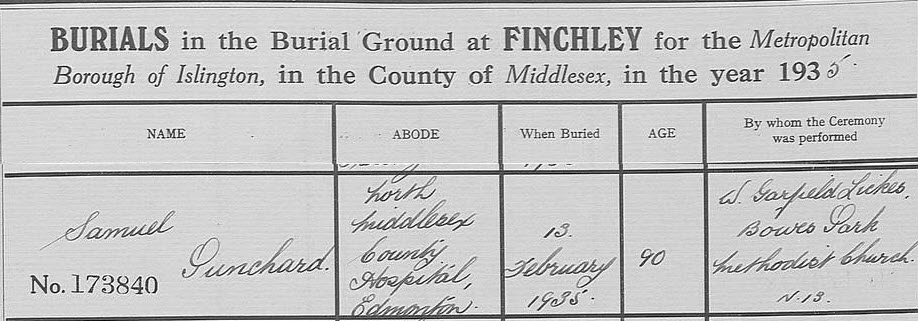 BURIALS in the Burial Ground at FINCHLEY for the Metropolitan
Borough of Islington, in the County of Middlesex, in the year 1935.
NAME
ABODE
When Buried
AGE
By whom the Ceremony
was performed
Samuel
Punchard.
No. 173840
North
Middlesex
County
Hospital,
Edmonton.
13.
February
1935.
90
W. Garfield Lickes.
Bowes Park
Methodist Church.
N.13.